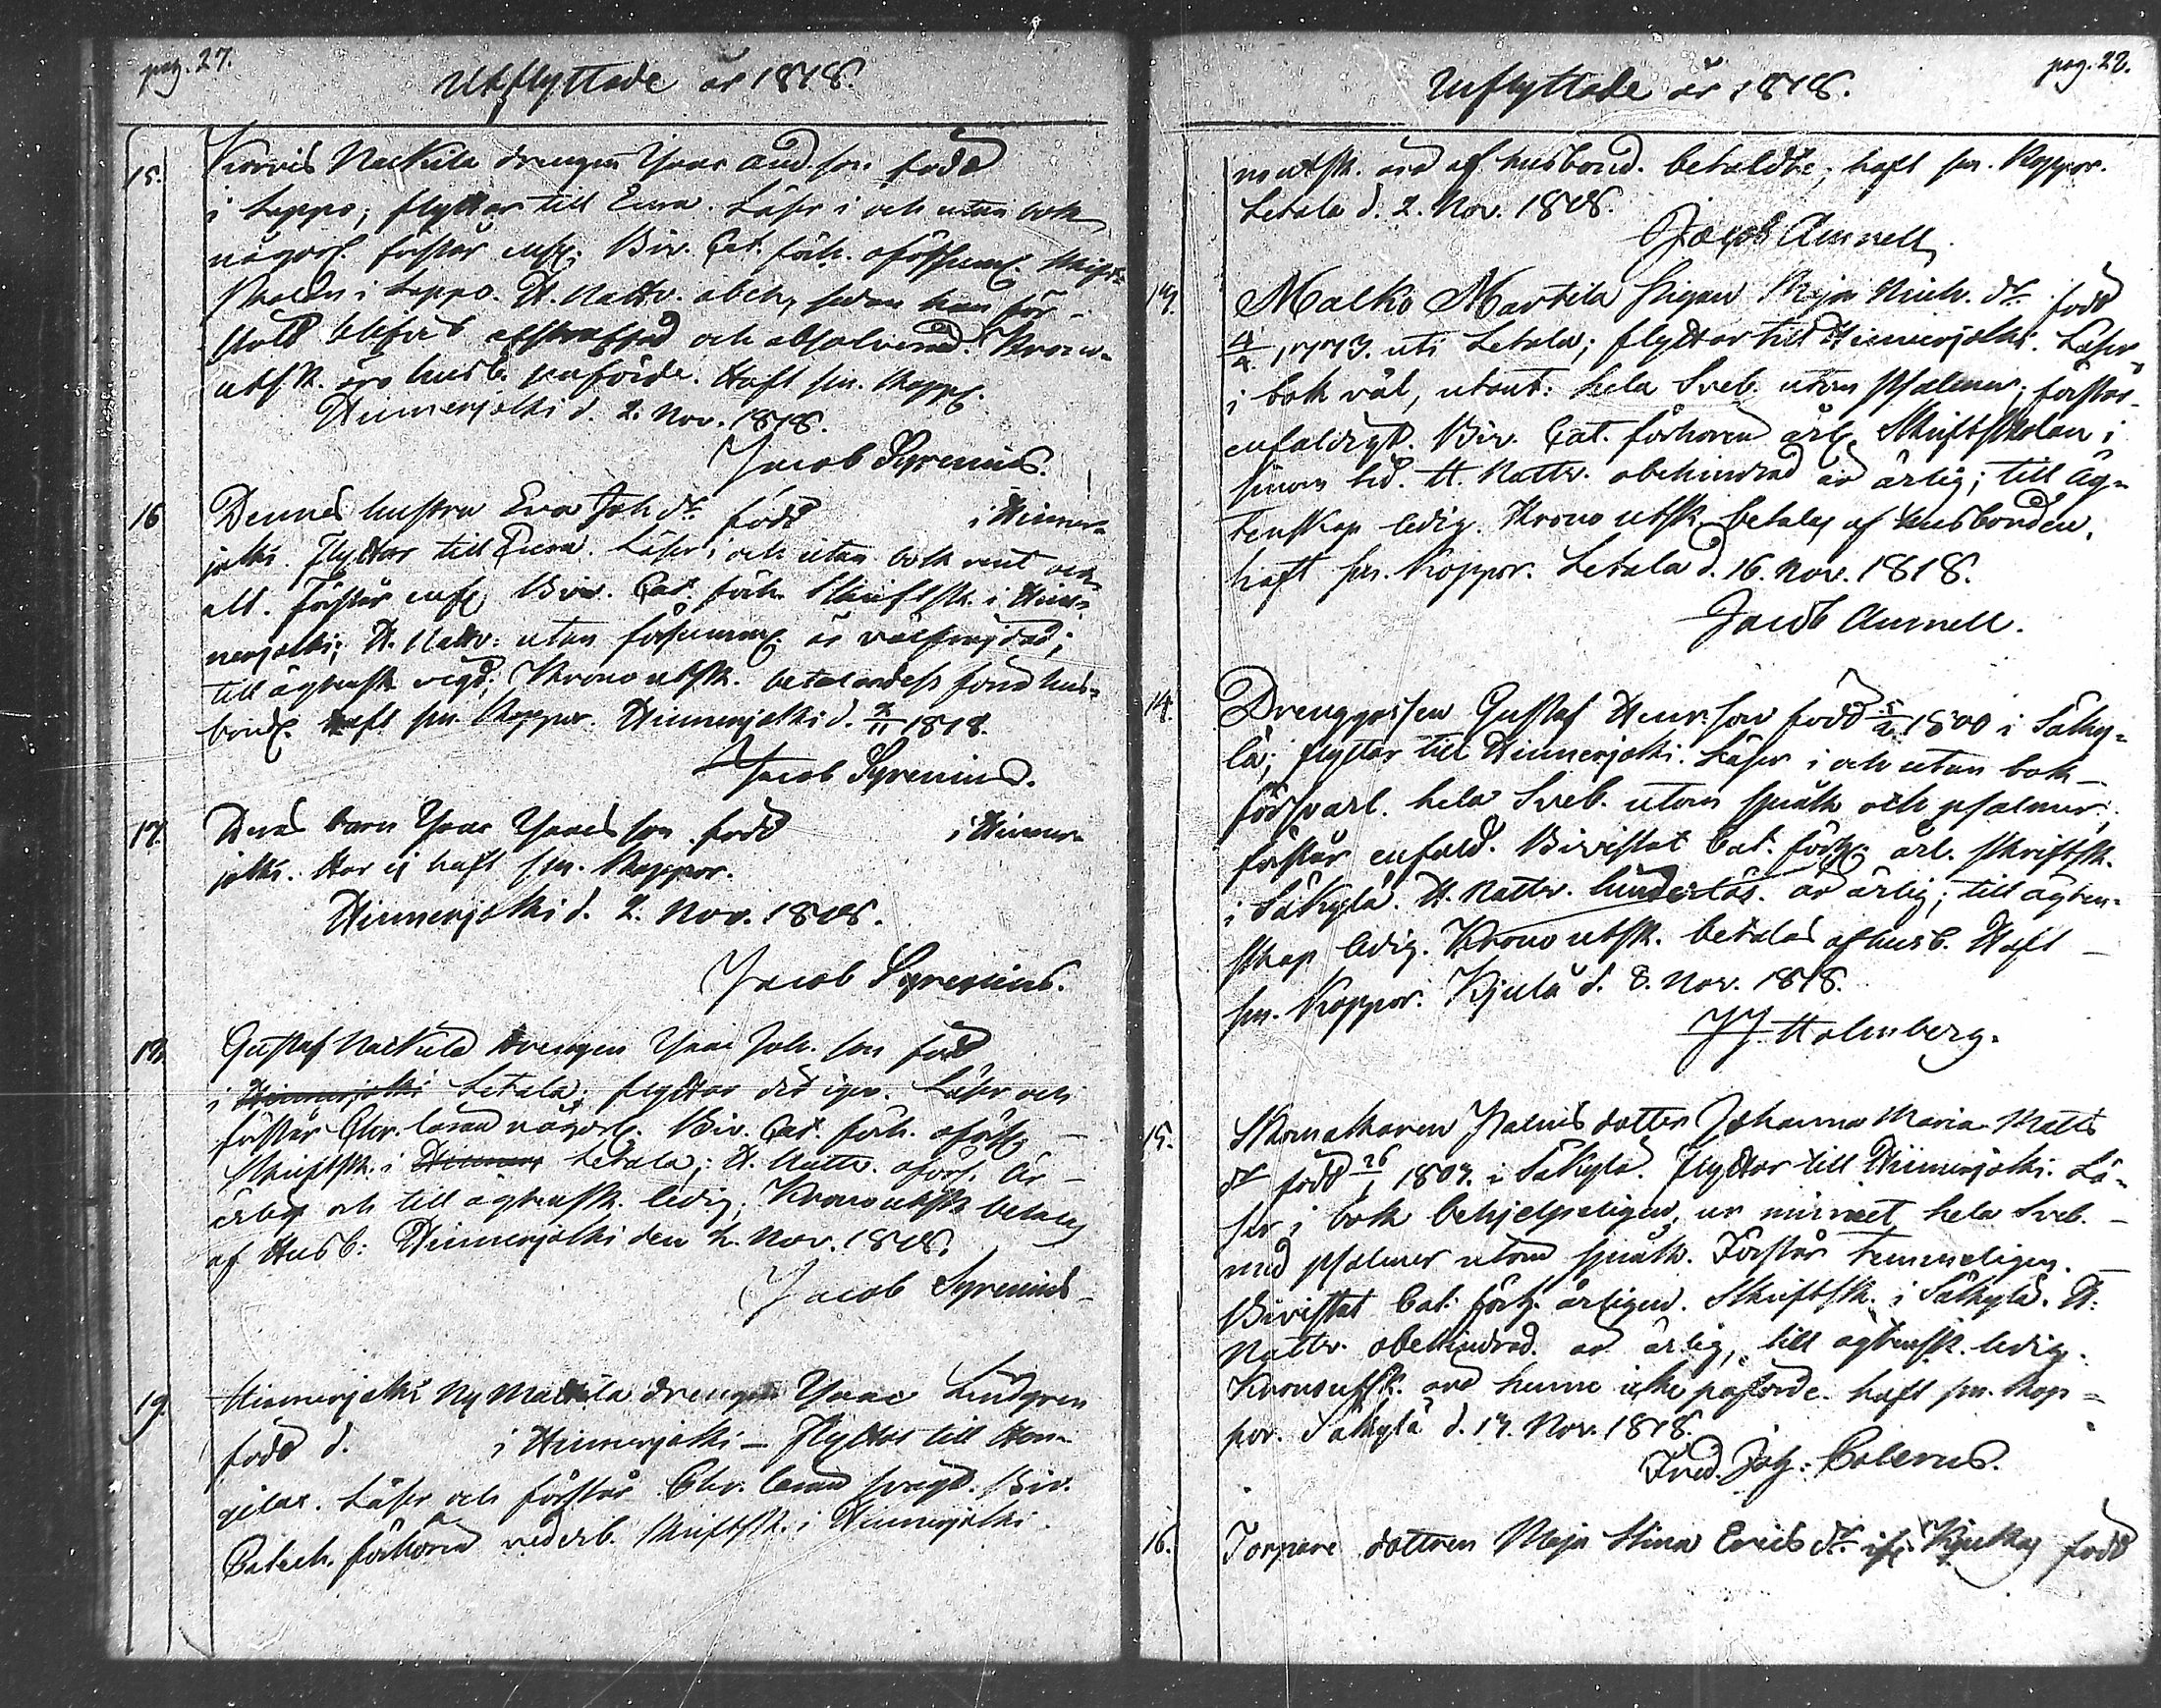 pag. 27.
Utflyttade år 1818.
15. Korvis Nackila drengen Isaac And. son född
i Lappo; flyttar till Eura. Läser i och utan bok
någorl. förstår enf. Biv. Cat. förh. oförsuml. Skrift-
skolan i Lappo. H. Nattv. obeh, sedan han för
stöld blifvit afstraffad och absolverad. Krono-
utsk. äro husb. påförde. Haft sm. Kopp.
Hinnerjoki d. 2. Nov. 1818.
Jacob Syrenius.
16 Dennes hustru Eva Joh. dr. född i Hinner-
joki. Flyttar till Eura. Läser i och utan bok rent och
allt. Förstår enf. Biv. Cat. förh. Skriftsk. i Hin-
nerjoki; H. Nattv. utan försumm. är välfrejdad;
till ägtensk. vigd; Kronoutsk. betalandes hus-
bond. Haft sm. Koppor. Hinnerjoki d. 2/11 1818.
Jacob Syrenius.
17. Deras barn Isaac Isacs son född i Hinner-
joki. Har ej haft sm. Koppor.
Hinnerjoki d. 2. Nov. 1818.
Jacob Syrenius.
18. Gustaf Nackila drengen Isaac Joh. son född
i Hinnerjoki Letala; flyttar dit igen. Läser och
förstår Chr. läran någorl. Biv. Cat. förh. oförs.
Skriftsk. i Hinner Letala; H. Nattv. oförs. Är
ärlig och till ägtensk. ledig; Kronoutsk. betalas
af Husb: Hinnerjoki den 2. Nov. 1818.
Jacob Syrenius
19. Hinnerjoki Ny Mattila drengen Isaac Lindgren
född d. i Hinnerjoki – Flyttar till Hon-
gilax. Läser och förstår Chr. läran svagt. Biv.
Catech. förhören vederb. Skriftsk. i Hinnerjoki.
pag. 22.
Inflyttade år 1818.
utsk. äro af husbond. betaldte; haft sm. Koppor.
Letala d. 2. Nov. 1818.
Jacob Aumnell
13. Malko Martila Pigan Maja Mich. dr. född
4/4 1773. uti Letala; flyttar till Hinnerjoki. Läser
i bok väl, utant: hela Sveb. utom psalmer; förstår
enfaldigt. Biv. Cat. förhören årl. Skriftskolan i
sinom tid. H. Nattv. obehindrad är ärlig; till äg-
tenskap ledig. Krono utsk. betalas af husbonden.
haft sm. Koppor. Letala d. 16. Nov. 1818.
Jacob Aumnell.
14. Drenggossen Gustaf Henr. son född 1800 i Säky-
lä; flyttar till Hinnerjoki. Läser i och utan bok
försvarl. hela Sveb. utom spark och psalmer;
förstår enfald. Bivistat Cat. förh. årl. skriftsk.
i Säkylä. H. Nattv. hinderlös. är ärlig; till ägten-
skap ledig. Krono utsk. betalas af husb. Haft
sm. Koppor. Kjulo d. 8. Nov. 1818.
JJ. Holmberg.
15. Skomakaren Malmis dotter Johanna Maria Matts
dr född 26/1 1807. i Säkylä. Flyttar till Hinnerjoki. Lä-
ser i bok behjelpeligen, ur minnet hela Sveb.
med psalmer utom spark. Förstår temmeligen.
Bivistat Cat. förh. årligen. Skriftsk. i Säkylä. H.
Nattv. obehindrad. är ärlig, till ägtensk. ledig.
Kronoutsk. äro henne icke påförde. haft sm. Kop-
por. Säkylä d. 17. Nov. 1818.
Fred. Joh: Polerus.
16. Torpare dottren Maja Stina Erics dr ifr. född